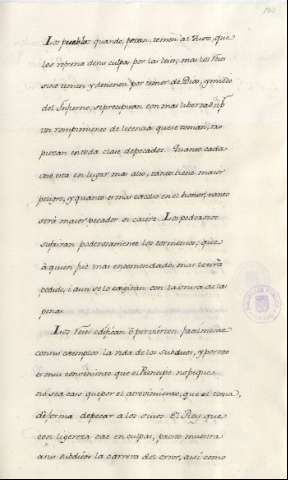 Los pueblos quando pecan, temen al Rey, que
los reprima de sus culpas por la leyes, mas los Reies
sino temen y detienen por temor de Dios, y miedo
del Infierno, se precipitan con mas libertad
un rompimiento de licencia que se toman,
en toda clase de pecador. Quanto cada
uno esta en lugar mas alto, tanto tiene maior
peligro, y quanto es mas excelso en el honor, tanto
será maior pecador si caiere. Los poderosos
sufriran poderosamente los tormentos, que
à quien fué mas encomendado, mas le será
pedido, i aun se lo exigiran con la usura de las
penas.
Los Reies edifican ò pervierten facilmente
con sus exemplos la vida de los subditos, y por eso
es mui conveniente que el Principe no peque
no sea caso que por el atrevimiento, que el toma,
dé forma de pecar a los suios. El Rey que
con ligereza cae en culpas, presto muestra
a sus subditos la carrera del error, assi como